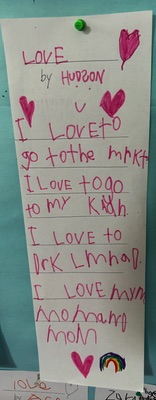 LOVE
by HUDSON
I LOVE to
go to the mrkt
I LOVE to go
to my
I LOVE to
Drk
I LOVE mym
momamd
mom